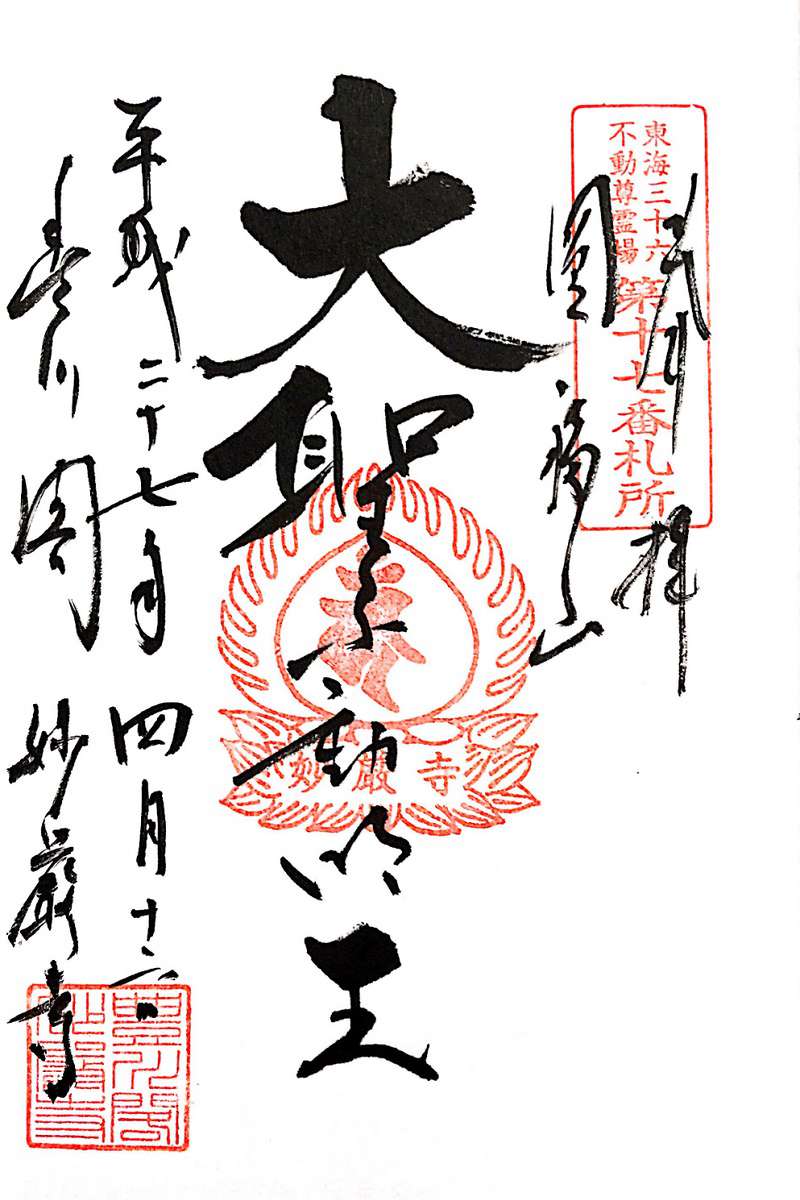 東海三十六
不動尊霊場
第十七番札所
拝
圓福山
大聖不動明王
妙嚴寺
平成二十七年四月十日
豊川閣 妙嚴寺
豊川閣
妙嚴寺